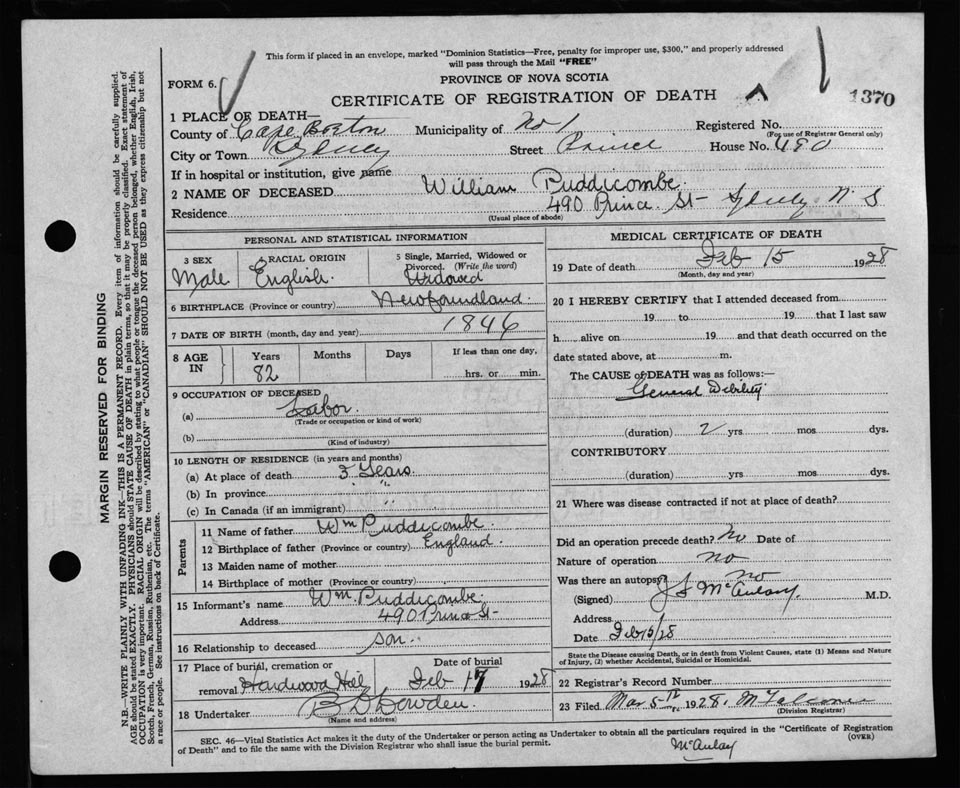 This form if placed in an envelope, marked "Dominion Statistics—Free, penalty for improper use, $300," and properly addressed
will pass through the Mail "FREE"
FORM 6.
PROVINCE OF NOVA SCOTIA
CERTIFICATE OF REGISTRATION OF DEATH
1370
1 PLACE OF DEATH—
County of Cape Breton Municipality of No 1 Registered No.
(For use of Registrar General only)
City or Town Sydney Street Prince House No. 490
If in hospital or institution, give name
2 NAME OF DECEASED William Puddicombe.
Residence 490 Prince St— Sydney N S
(Usual place of abode)
PERSONAL AND STATISTICAL INFORMATION
3 SEX Male
RACIAL ORIGIN English.
5 Single, Married, Widowed or
Divorced. (Write the word)
Widowed
6 BIRTHPLACE (Province or country) Newfoundland.
7 DATE OF BIRTH (month, day and year) 1846
8 AGE IN
Years 82
Months
Days
If less than one day,
hrs. or min.
9 OCCUPATION OF DECEASED
(a) Labor.
(Trade or occupation or kind of work)
(b)
(Kind of industry)
10 LENGTH OF RESIDENCE (in years and months)
(a) At place of death 3 Years
(b) In province "
(c) In Canada (if an immigrant) "
Parents
11 Name of father Wm Puddicombe.
12 Birthplace of father (Province or country) England.
13 Maiden name of mother
14 Birthplace of mother (Province or country)
15 Informant's name Wm. Puddicombe.
Address 490 Prince St—
16 Relationship to deceased son.
17 Place of burial, cremation or
removal Hardwood Hill
Date of burial
Feb 17 1928
18 Undertaker
(Name and address)
MEDICAL CERTIFICATE OF DEATH
19 Date of death Feb 15 1928
(Month, day and year)
20 I HEREBY CERTIFY that I attended deceased from
19 to 19 that I last saw
h alive on 19 and that death occurred on the
date stated above, at m.
The CAUSE of DEATH was as follows:—
General Debility
(duration) 2 yrs mos dys.
CONTRIBUTORY
(duration) yrs mos dys.
21 Where was disease contracted if not at place of death?
Did an operation precede death? No Date of
Nature of operation no
Was there an autopsy? no
(Signed) McAulay M.D.
Address
Date Feb 15/28
State the Disease causing Death, or in death from Violent Causes, state (1) Means and Nature
of Injury, (2) whether Accidental, Suicidal or Homicidal.
22 Registrar's Record Number
23 Filed Mar 5th 1928.
(Division Registrar)
SEC. 46—Vital Statistics Act makes it the duty of the Undertaker or person acting as Undertaker to obtain all the particulars required in the "Certificate of Registration
of Death" and to file the same with the Division Registrar who shall issue the burial permit.
(OVER)
McAulay
MARGIN RESERVED FOR BINDING
N.B.—WRITE PLAINLY WITH UNFADING INK—THIS IS A PERMANENT RECORD. Every item of information should be carefully supplied.
AGE should be stated EXACTLY. PHYSICIANS should STATE CAUSE OF DEATH in plain terms, so that it may be properly classified. Exact statement of
OCCUPATION is very important. RACIAL ORIGIN will be described by stating to what people or tongue the deceased person belonged, whether English, Irish,
Scotch, French, German, Russian, Ruthenian, etc. The terms "AMERICAN" or "CANADIAN" SHOULD NOT BE USED as they express citizenship but not
a race or people. See instructions on back of Certificate.